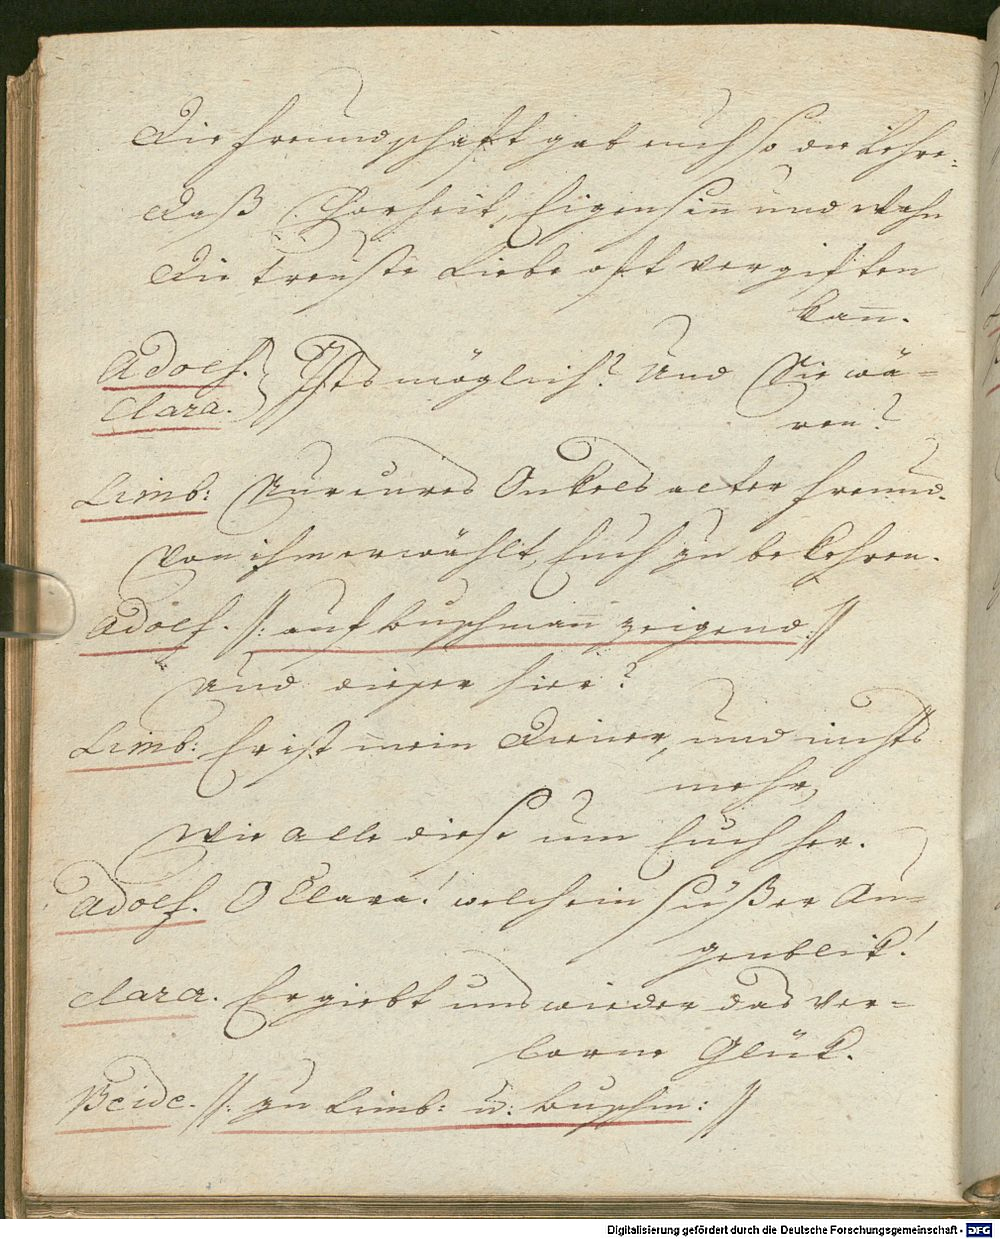 Die Freundschaft gab euch so die Lehre,
daß Thorheit, Eigensiñ und Wahn
Die treuste Liebe oft vergiften
kañ.
Adolf. } Ists möglich? Und Sie wä=
Clara.
ren?
Limb: Nur eures Onkels alter Freund.
Von ihm erwählt, Euch zu bekehren.
Adolf. //: auf Buschmañ zeigend ://
Und dieser hier?
Limb: Er ist mein Diener, und nichts
mehr,
Wie alle diese um Euch her.
Adolf. O Clara! welch ein süßer Au=
genblik!
Clara. Er giebt uns wieder das ver=
lorne Glük.
Beide. //: zu Limb: u: Buschm: //
Digitalisierung gefördert durch die Deutsche Forschungsgemeinschaft - DFG